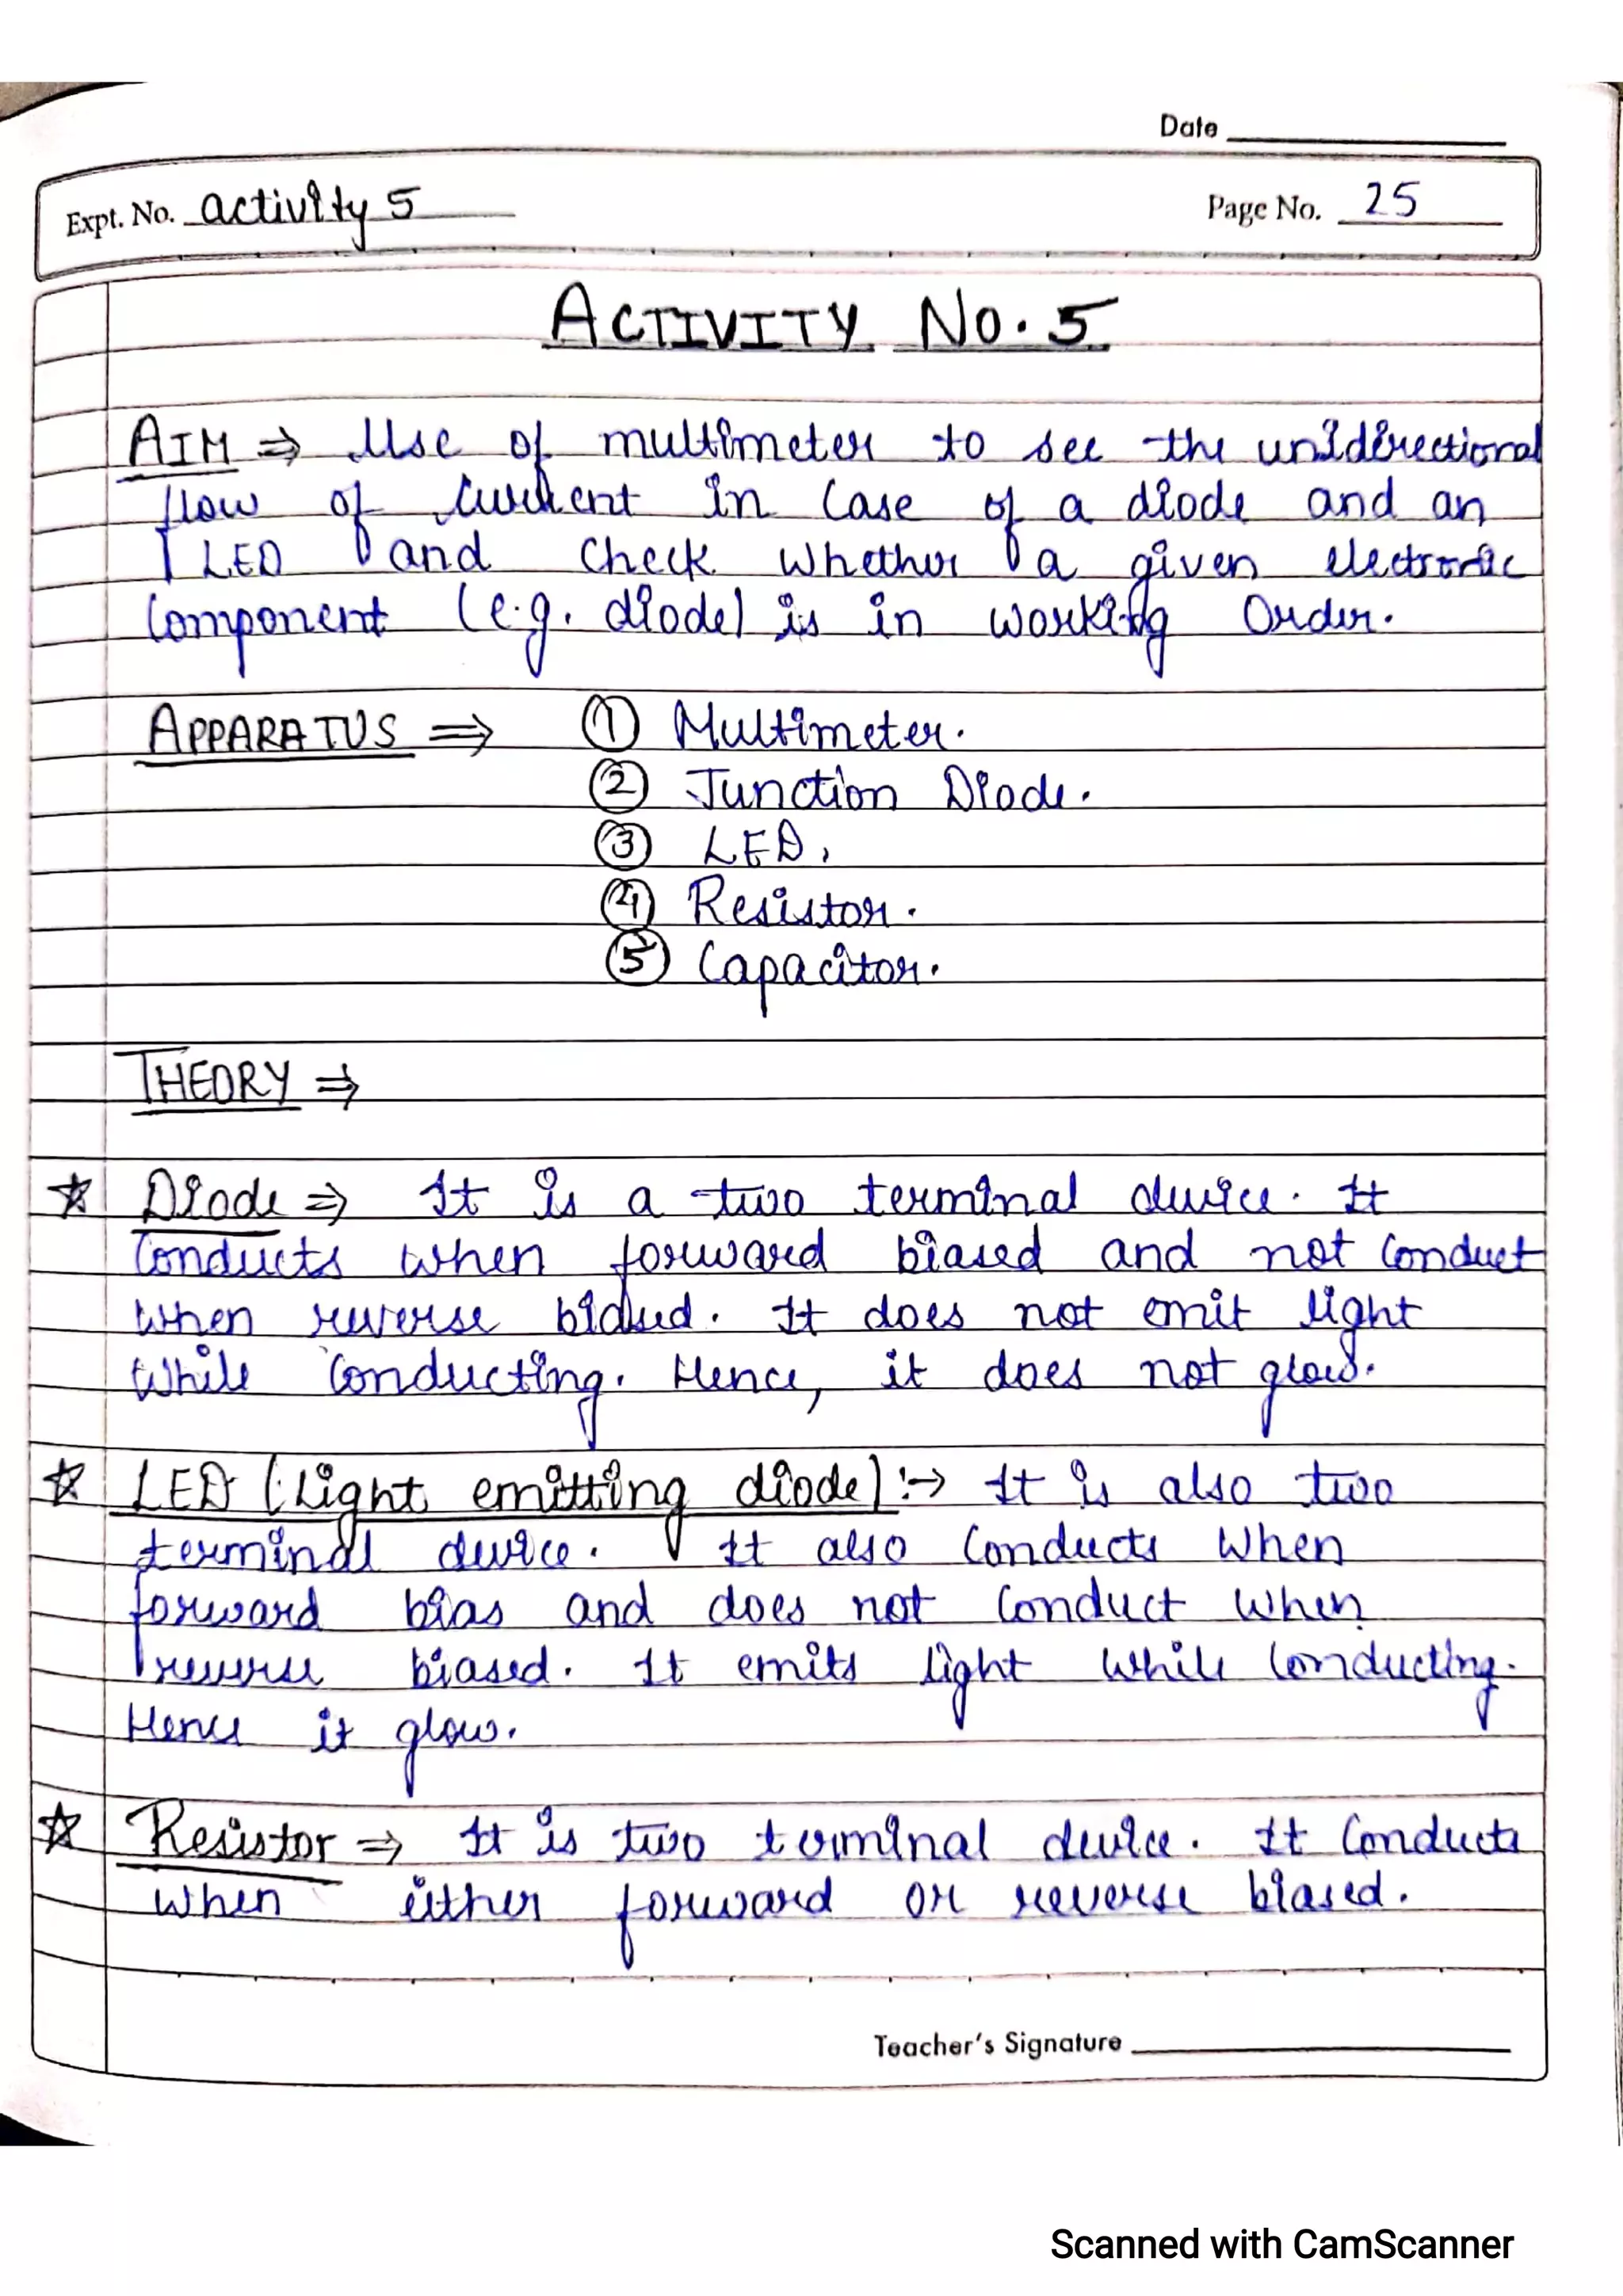 Date
Expt. No. activity 5
Page No. 25
ACTIVITY NO. 5
AIM ⇒ Use of multimeter to see the unidirectional
flow of current in case of a diode and an
LED and check whether a given electronic
component (e.g. diode) is in working order.
APPARATUS ⇒ ① Multimeter.
② Junction Diode.
③ LED,
④ Resistor.
⑤ Capacitor.
THEORY ⇒
☆ Diode ⇒ It is a two terminal device. It
conducts when forward biased and not conduct
when reverse biased. It does not emit light
while conducting. Hence, it does not glow.
☆ LED (Light emitting diode) :→ It is also two
terminal device. It also conducts when
forward bias and does not conduct when
reverse biased. It emits light while conducting.
Hence it glow.
☆ Resistor ⇒ It is two terminal device. It conducts
when either forward or reverse biased.
Teacher's Signature
Scanned with CamScanner